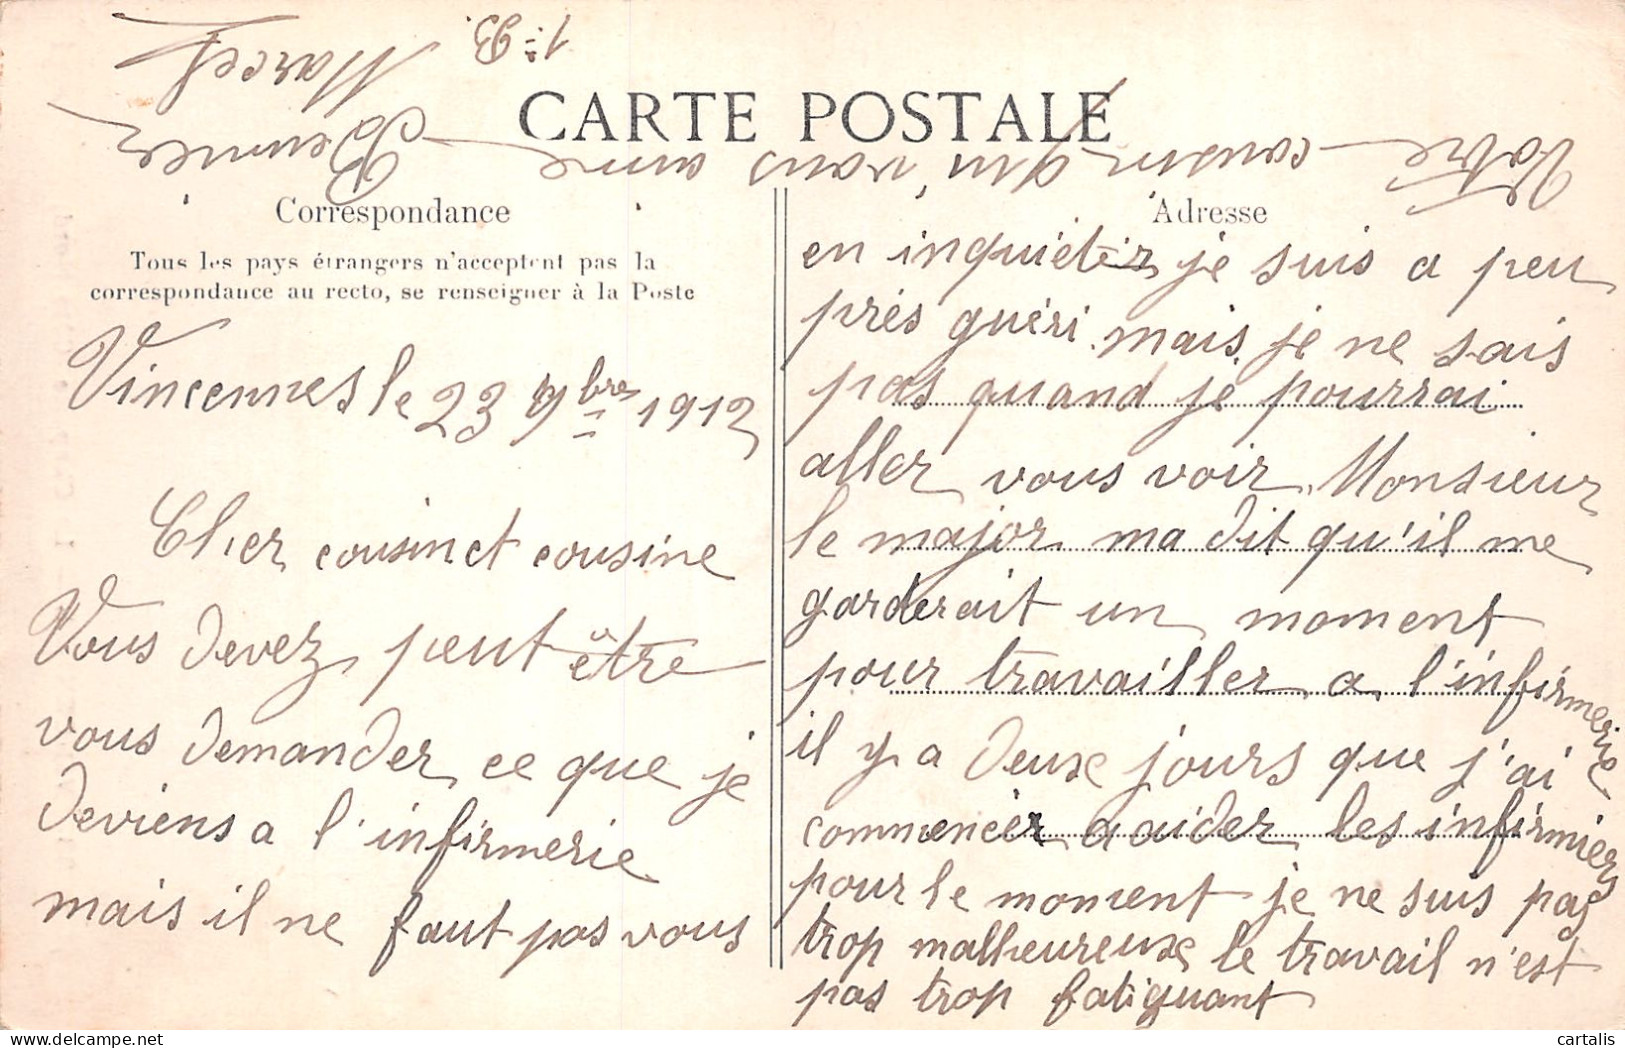 CARTE POSTALE
Correspondance
Tous les pays étrangers n'acceptent pas la
correspondance au recto, se renseigner à la Poste
Vincennes le 23 9bre 1912
Cher cousin et cousine
Vous devez peut être
vous demander ce que je
deviens a l'infirmerie
mais il ne faut pas vous
Adresse
en inquiéter je suis a peu
près guéri mais je ne sais
pas quand je pourrai
aller vous voir Monsieur
le major ma dit qu'il me
garderait un moment
pour travailler a l'infirmerie
il y a deux jours que j'ai
commencer a aider les infirmiers
pour le moment je ne suis pas
trop malheureux le travail n'est
pas trop fatiguant
Votre cousin qui vous aime
Marcel
cartalis